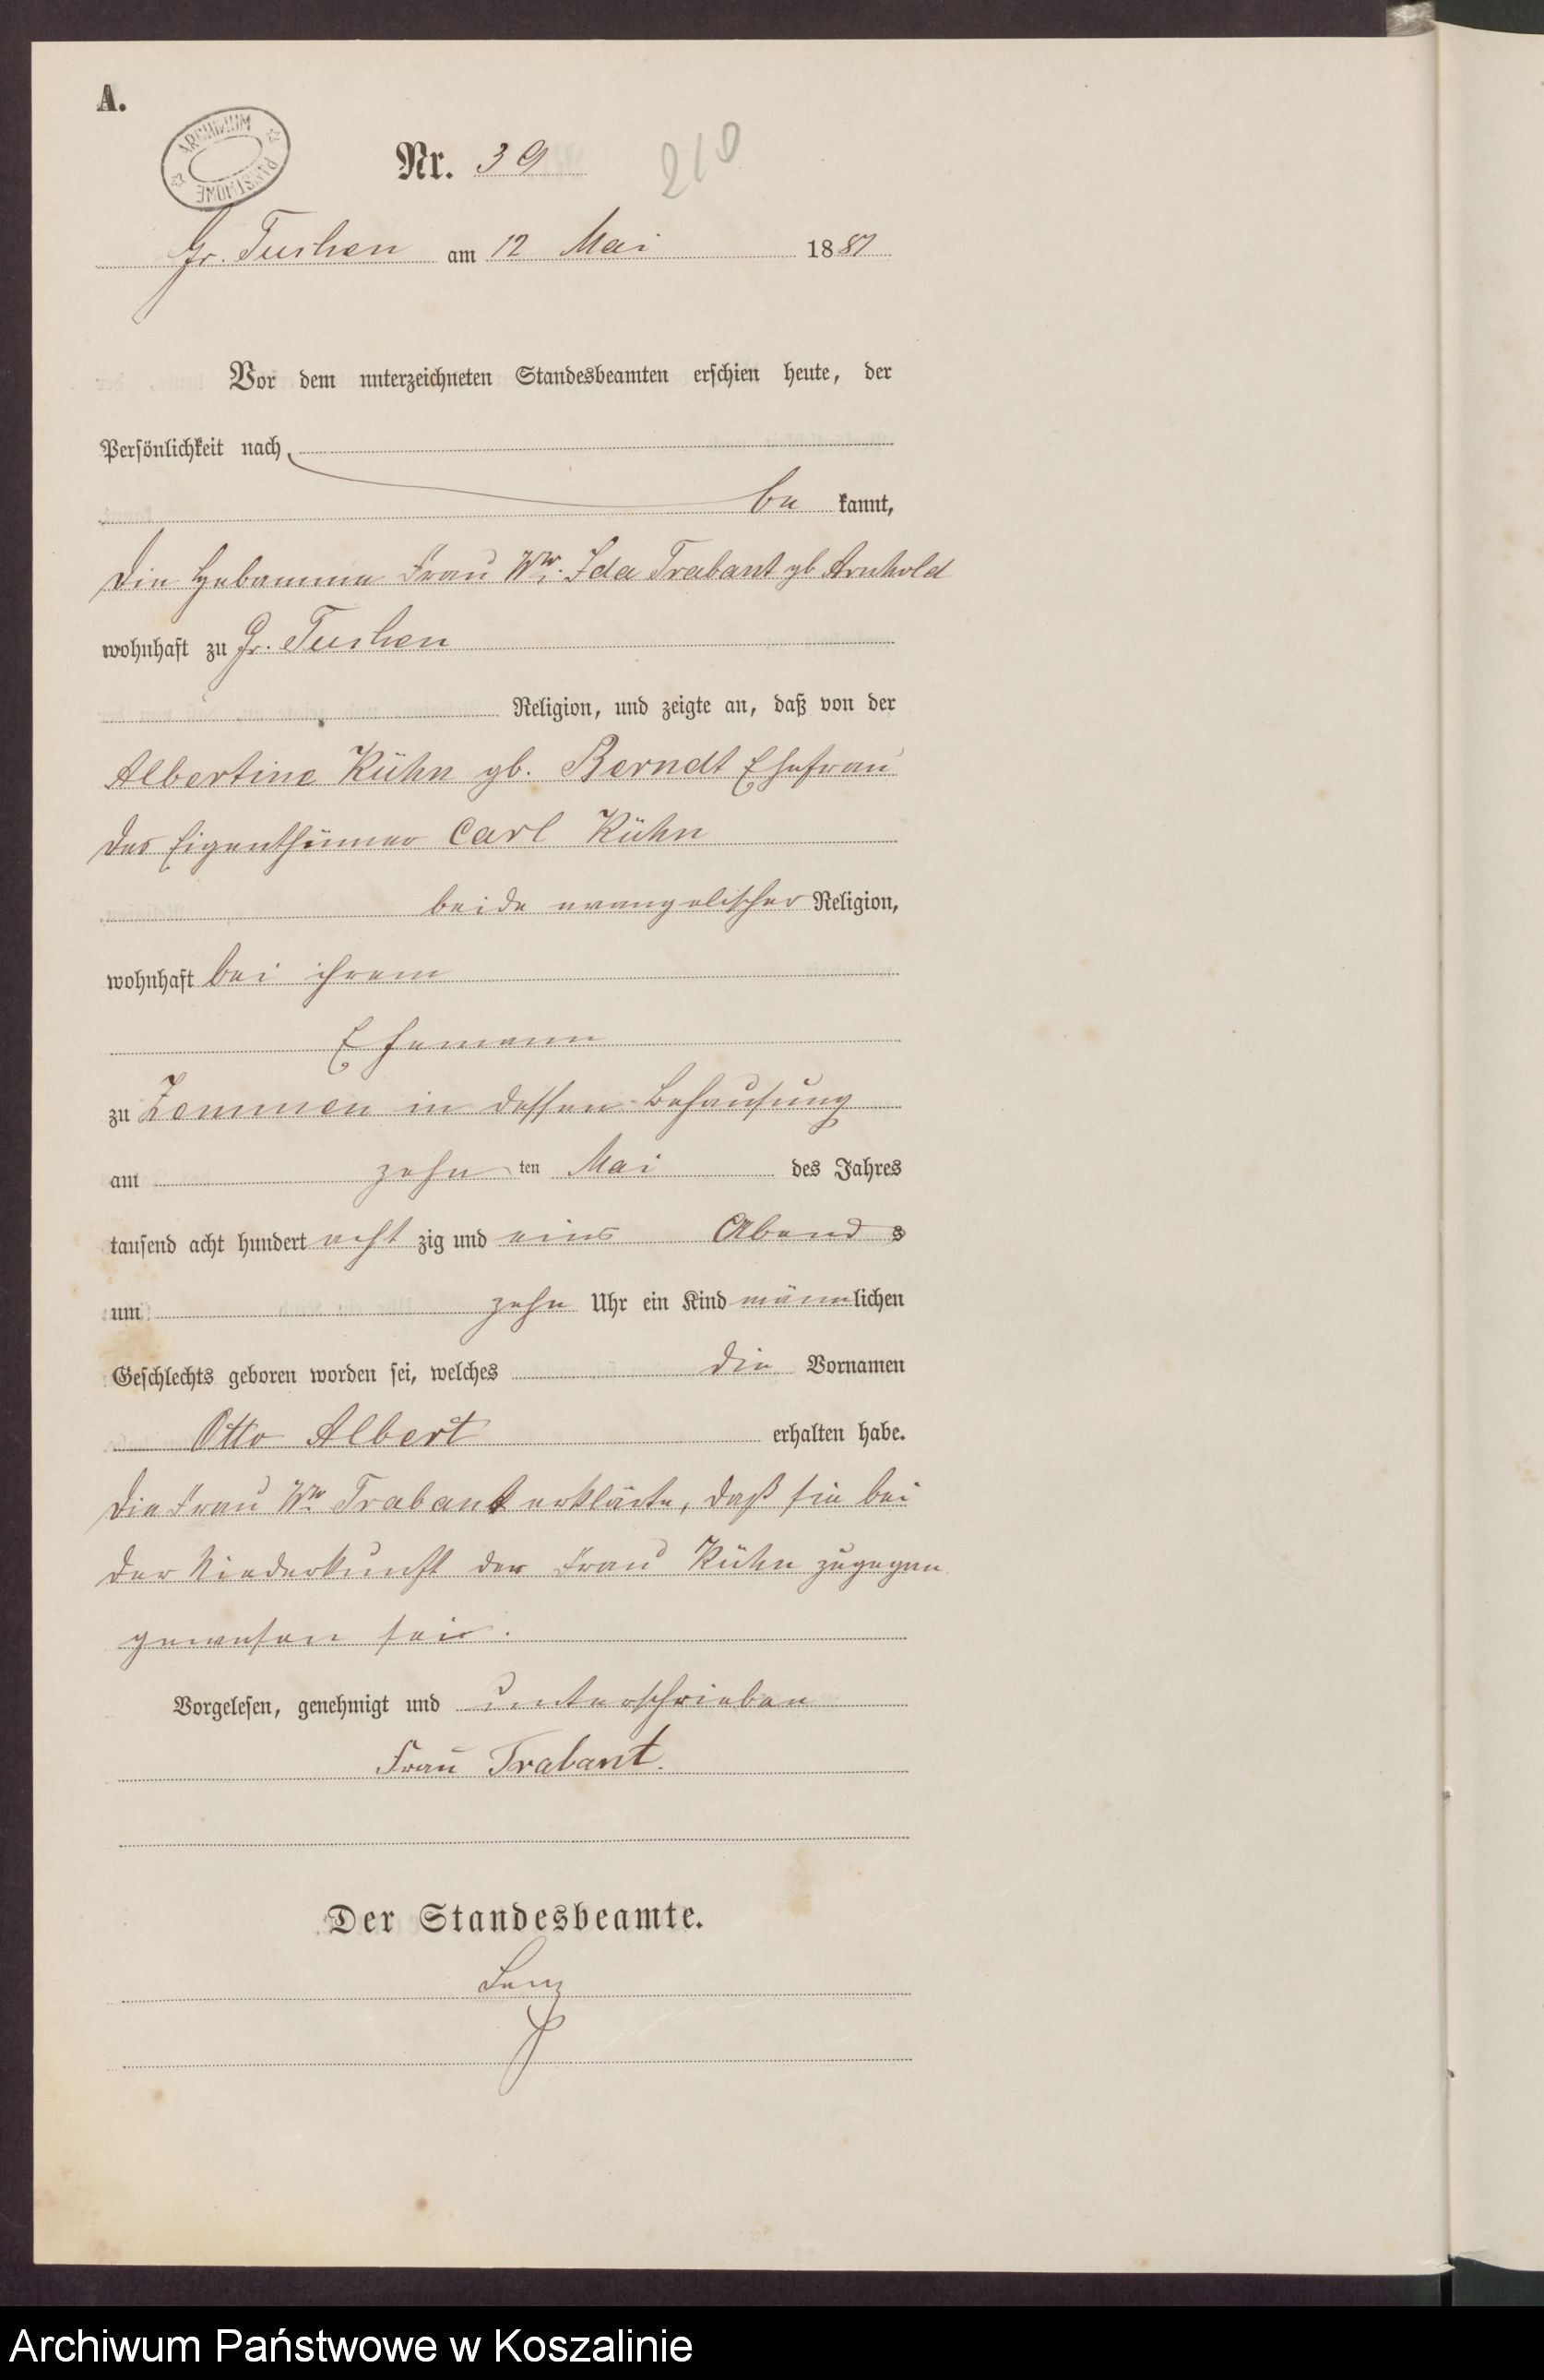 A.
ARCHIWUM PAŃSTWOWE
Nr. 39
210
Gr. Tuchen am 12 Mai 1881
Vor dem unterzeichneten Standesbeamten erschien heute, der
Persönlichkeit nach
be kannt,
die Hebamme Frau Ww. Ida Trabant gb Arnhold
wohnhaft zu Gr. Tuchen
Religion, und zeigte an, daß von der
Albertine Kühn gb. Berndt Ehefrau
des Eigenthümer Carl Kühn
beide evangelischer Religion,
wohnhaft bei ihrem
Ehemann
zu Zemmen in dessen Behausung
am zehn ten Mai des Jahres
tausend acht hundert acht zig und eins Abends
um zehn Uhr ein Kind männlichen
Geschlechts geboren worden sei, welches die Vornamen
Otto Albert erhalten habe.
Die Frau Ww Trabant erklärte, daß sie bei
der Niederkunft der Frau Kühn zugegen
gewesen sei.
Vorgelesen, genehmigt und unterschrieben
Frau Trabant.
Der Standesbeamte.
Lenz
Archiwum Państwowe w Koszalinie